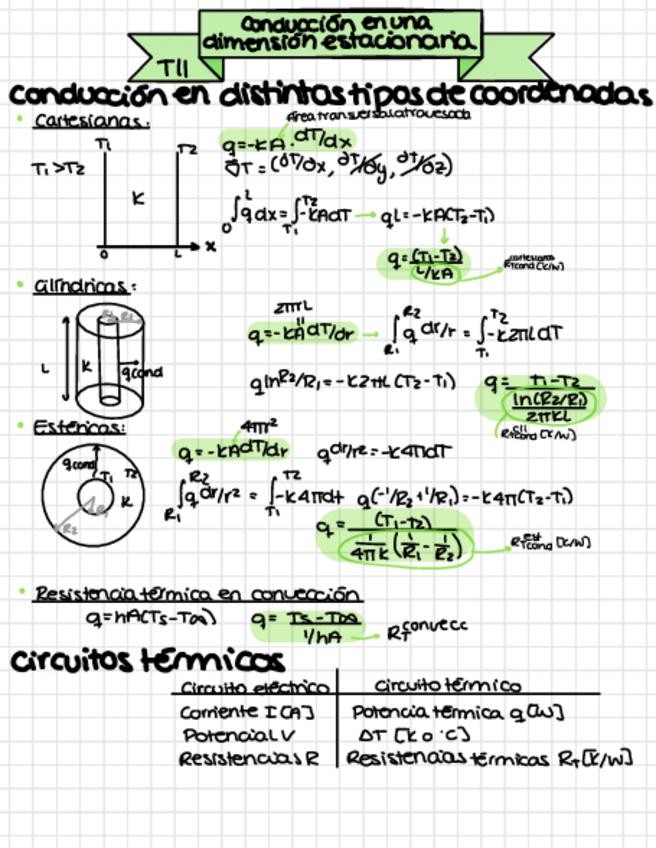 Conducción en una
dimensión estacionaria
T11
conducción en distintos tipos de coordenadas
• Cartesianas:
Área transversal atravesada
T1>T2
T1
T2
K
0
L
x
q=-kA·dT/dx
∇T=(∂T/∂x, ∂T/∂y, ∂T/∂z)
∫₀ᴸ q dx = ∫_T1^T2 -kA dT → qL=-kA(T2-T1)
q= (T1-T2) / (L/kA)
R_Tcond^cartesianas [K/W]
• Cilíndricas:
L
K
qcond
R1
R2
2πrL
q=-kA dT/dr → ∫_R1^R2 q dr/r = ∫_T1^T2 -k2πL dT
q ln R2/R1 = -k2πL (T2-T1)
q= T1-T2 / (ln(R2/R1) / 2πKL)
R_Tcond^cil [K/W]
• Esféricas:
qcond
T1
T2
K
R1
R2
4πr²
q=-kA dT/dr
q dr/r²=-k4πdT
∫_R1^R2 q dr/r² = ∫_T1^T2 -k4πdt
q(-1/R2+1/R1)=-k4π(T2-T1)
q= (T1-T2) / (1/4πk (1/R1 - 1/R2))
R_Tcond^esf [K/W]
• Resistencia térmica en convección
q=hA(Ts-T∞)
q= Ts-T∞ / (1/hA) → R_T^convecc
circuitos térmicos
Circuito eléctrico
Circuito térmico
Corriente I [A]
Potencia térmica q [W]
Potencial V
ΔT [K o °C]
Resistencias R
Resistencias térmicas R_T [K/W]